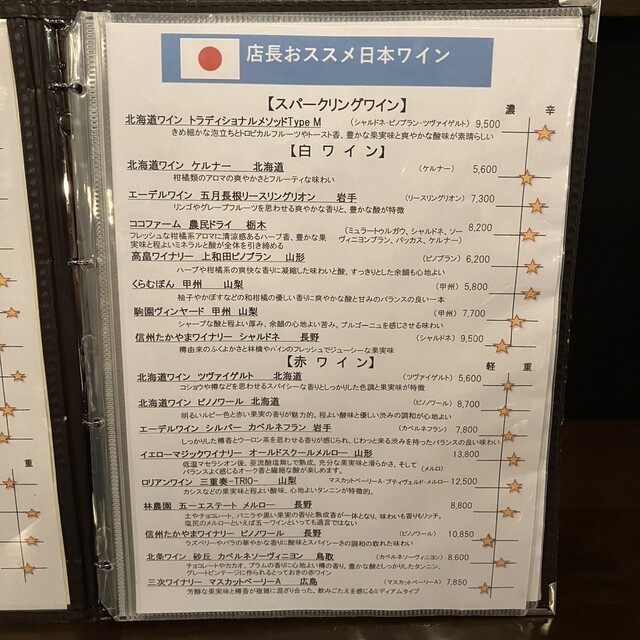 店長おススメ日本ワイン
【スパークリングワイン】
濃 辛
北海道ワイン トラディショナルメソッドType M (シャルドネ・ピノブラン・ツヴァイゲルト) 9,500
きめ細かな泡立ちとトロピカルフルーツやトースト香、豊かな果実味と爽やかな酸味が素晴らしい
【白 ワイン】
北海道ワイン ケルナー 北海道 (ケルナー) 5,600
柑橘類のアロマの爽やかさとフルーティな味わい
エーデルワイン 五月長根リースリングリオン 岩手 (リースリングリオン) 7,300
リンゴやグレープフルーツを思わせる爽やかな香りと、豊かな酸が特徴
ココファーム 農民ドライ 栃木 (ミュラートゥルガウ、シャルドネ、ソー 8,200
フレッシュな柑橘系アロマに清涼感あるハーブ香、豊かな果 ヴィニヨンブラン、バッカス、ケルナー)
実味と程よいミネラルと酸が全体を引き締める
高畠ワイナリー 上和田ピノブラン 山形 (ピノブラン) 6,200
ハーブや柑橘系の爽快な香りに凝縮した味わいと酸、すっきりとした余韻も心地よい
くらむぼん 甲州 山梨 (甲州) 5,800
柚子やかぼすなどの和柑橘の優しい香りに爽やかな酸と甘みのバランスの良い一本
駒園ヴィンヤード 甲州 山梨 (甲州) 7,700
シャープな酸と程よい厚み、余韻の心地よい苦み。ブルゴーニュを感じさせる味わい
信州たかやまワイナリー シャルドネ 長野 (シャルドネ) 9,500
樽由来のふくよかさと林檎やパインのフレッシュでジューシーな果実味
【赤 ワイン】
軽 重
北海道ワイン ツヴァイゲルト 北海道 (ツヴァイゲルト) 5,600
コショウや樽などを思わせるスパイシーな香りとしっかりした色調と果実味が特徴
北海道ワイン ピノノワール 北海道 (ピノノワール) 8,700
明るいルビー色と赤い果実の香りが魅力的。程よい酸味と優しい渋みの調和が心地よい
エーデルワイン シルバー カベルネフラン 岩手 (カベルネフラン) 7,800
しっかりした樽香とウーロン茶を思わせる香りが感じられ、じわっと来る渋みを持ったバランスの良い味わい
イエローマジックワイナリー オールドスクールメルロー 山形 13,800
低温マセラシオン後、亜流酸塩無しで熟成、充分な果実味と滑らかさ、そして (メルロ)
バランスよく感じるオーク香と繊細な酸が楽しめます。
ロリアンワイン 三重奏-TRIO- 山梨 マスカットベーリーA・プティヴェルド・メルロー 12,500
カシスなどの果実味と程よい酸味、心地よいタンニンが特徴的。
林農園 五一エステート メルロー 長野 8,800
土やチョコレート、バニラや黒い果実の香りと熟成香が一体となり、味わいも香りもリッチ。
塩尻のメルローといえば五一ワインといっても過言ではない
信州たかやまワイナリー ピノノワール 長野 (ピノノワール) 10,850
ラズベリーやバラの華やかな香りに酸味とスパイシーさの調和の取れた味わい
北条ワイン 砂丘 カベルネソーヴィニヨン 鳥取 (カベルネソーヴィニヨン) 8,600
チョコレートやカカオ、プラムの香りに心地よい樽の香り、豊かな酸としっかりしたタンニン、
グレートビンテージに作られるとっておきの赤ワイン
三次ワイナリー マスカットベーリーA 広島 (マスカットベーリーA) 7,850
芳醇な果実味と樽香が複雑に混ざり合った、飲みごたえを感じるミディアムタイプ
重